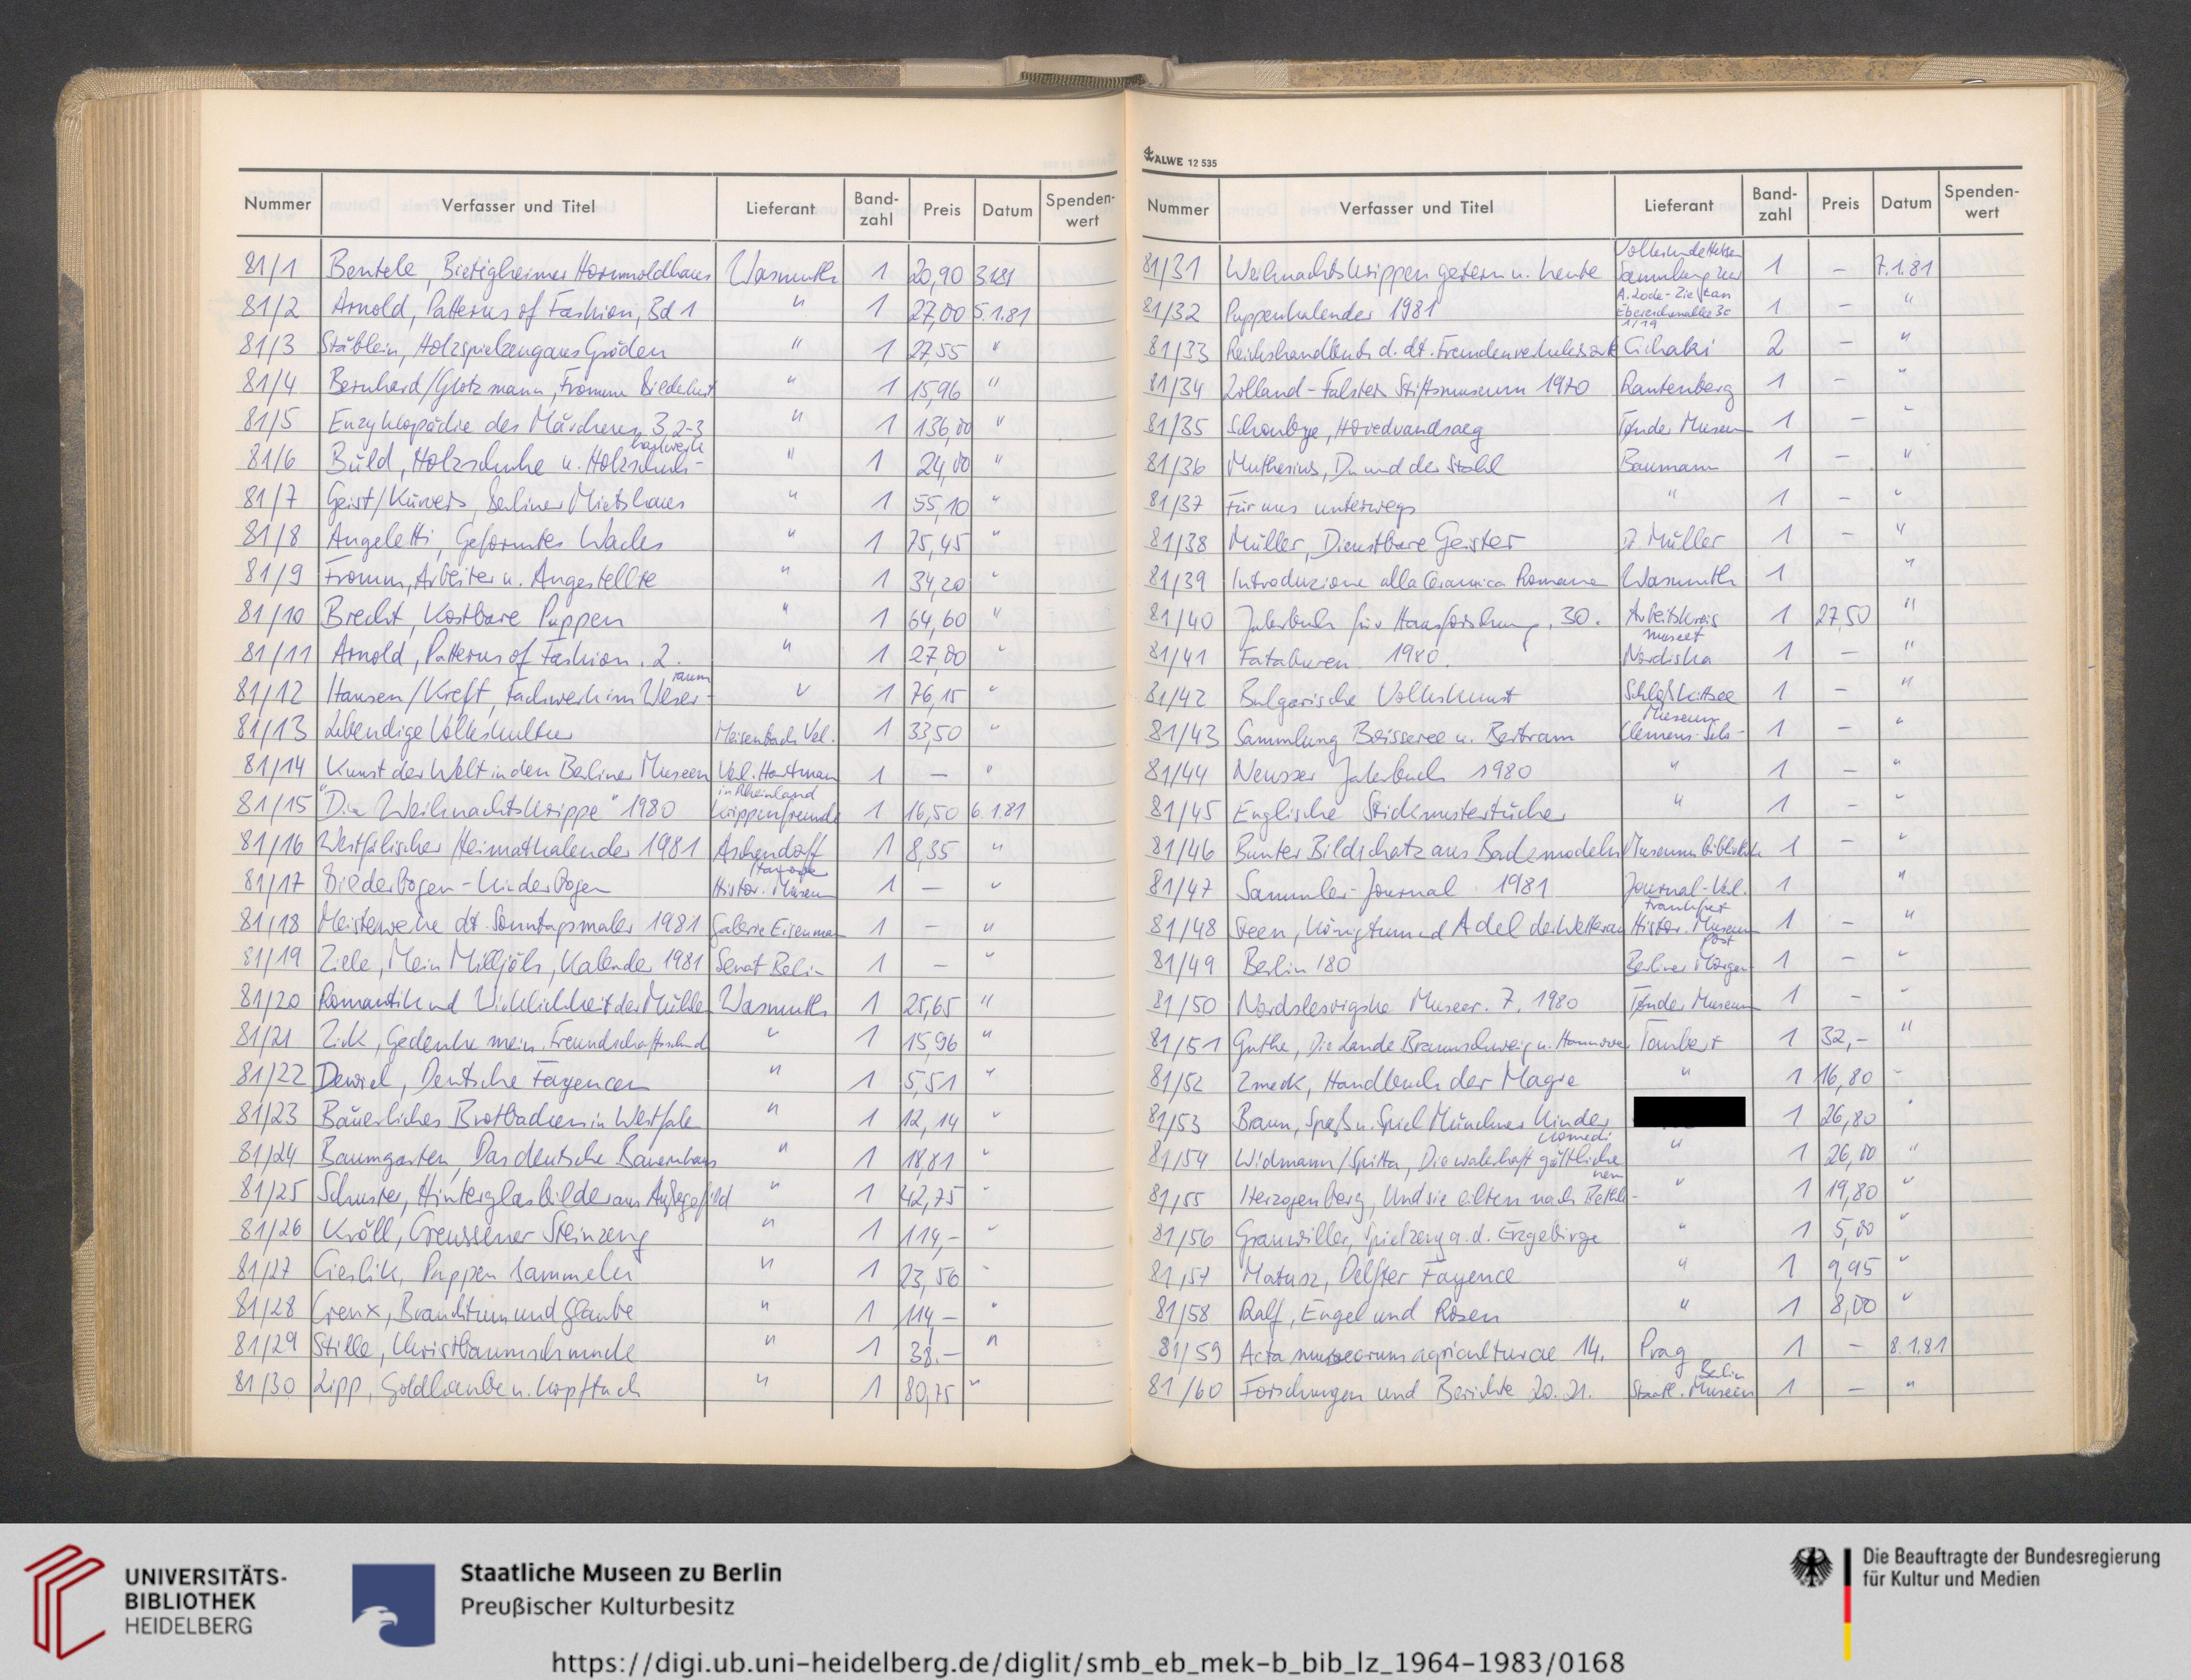 Nummer Verfasser und Titel Lieferant Band-zahl Preis Datum Spenden-wert
81/1 Bentele, Bietigheimer Hornmoldhaus Wasmuth 1 20,90 3.1.81
81/2 Arnold, Patterns of Fashion, Bd 1 " 1 27,00 5.1.81
81/3 Stäblein, Holzspielzeug aus Gröden " 1 27,55 "
81/4 Bernhard/Glotzmann, Fromme Bilderlust " 1 15,96 "
81/5 Enzyklopädie des Märchens 3,2-3 " 1 136,00 "
81/6 Buld, Holzschuhe u. Holzschuh-handwerk " 1 24,00 "
81/7 Geist/Kürvers, Berliner Mietshaus " 1 55,10 "
81/8 Angeletti, Geformtes Wachs " 1 75,45 "
81/9 Fromm, Arbeiter u. Angestellte " 1 34,20 "
81/10 Brecht, Kostbare Puppen " 1 64,60 "
81/11 Arnold, Patterns of Fashion. 2. " 1 27,00 "
81/12 Hansen/Kreft, Fachwerk im Weser-raum " 1 76,15 "
81/13 Lebendige Volkskultur Meisenbach Verl. 1 33,50 "
81/14 Kunst der Welt in den Berliner Museen Verl. Hartmann 1 — "
81/15 "Die Weihnachtskrippe" 1980 Krippenfreunde in Rheinland 1 16,50 6.1.81
81/16 Westfälischer Heimatkalender 1981 Aschendorff 1 8,35 "
81/17 Bilderbogen-Kinderbogen Histor. Museum Hannover 1 — "
81/18 Meisterwerke dt. Sonntagsmaler 1981 Galerie Eisenmann 1 — "
81/19 Ziele, Mein Milljöh, Kalender 1981 Senat Berlin 1 — "
81/20 Romantik und Wirklichkeit der Mühlen Wasmuth 1 25,65 "
81/21 Zick, Gedenke mein. Freundschafts " 1 15,96 "
81/22 Dewiel, Deutsche Fayencen " 1 5,51 "
81/23 Bäuerliches Brotbacken in Westfalen " 1 12,14 "
81/24 Baumgarten, Das deutsche Bauernhaus " 1 18,81 "
81/25 Schuster, Hinterglasbilder aus " 1 42,75 "
81/26 Kröll, Creussener Steinzeug " 1 114,- "
81/27 Cieslik, Puppen sammeln " 1 23,56 "
81/28 Creux, Brauchtum und Glaube " 1 114,- "
81/29 Stille, Christbaumschmuck " 1 38.— "
81/30 Lipp, Goldhaube u. Kopftuch " 1 80,75 "
ALWE 12 535
Nummer Verfasser und Titel Lieferant Band-zahl Preis Datum Spenden-wert
81/31 Weihnachtskrippen gestern u. heute Sammlung zur 1 — 7.1.81
81/32 Puppenkalender 1981 1 — "
81/33 Reichshandbuch d. dt. Fremdenverkehrsorte Cichaki 2 — "
81/34 Lolland-Falsters Stiftsmuseum 1970 Rantenberg 1 — "
81/35 Schoubye, Hovedvandsaeg Tønder Museum 1 — "
81/36 Muthesius, Du und der Stahl Baumann 1 — "
81/37 Für uns unterwegs " 1 — "
81/38 Müller, Dienstbare Geister Müller 1 — "
81/39 Introduzione alla Ceramica Romana Wasmuth 1 "
81/40 Jahrbuch für Hausforschung, 30. Arbeitskreis 1 27,50 "
81/41 Fataburen 1980. Nordiska museet 1 — "
81/42 Bulgarische Volkskunst Schloß Kittsee 1 — "
81/43 Sammlung Boisseree u. Bertram Clemens-Sels-Museum 1 — "
81/44 Neusser Jahrbuch 1980 " 1 — "
81/45 Englische Stickmustertücher " 1 — "
81/46 Bunter Bildschatz aus Backmodeln Museumsbibliothek 1 — "
81/47 Sammler-Journal 1981 Journal-Verl. 1 "
81/48 Steen, Königtum und Adel der Wetterau Histor. Museum Frankfurt 1 — "
81/49 Berlin '80 Berliner Morgenpost 1 — "
81/50 Nordslesvigske Museer. 7. 1980 Tønder Museum 1 — "
81/51 Guthe, Die Lande Braunschweig u. Hannover 1 32,- "
81/52 Zmeck, Handbuch der Magie " 1 16,80 "
81/53 Braun, Spaß u. Spiel Münchner Kinder 1 26,80 "
81/54 Widmann/Spitta, Die wahrhaft göttliche Komedi " 1 26,00 "
81/55 Herzogenberg, Und sie eilten nach " 1 19,80 "
81/56 Grauwiller, Spielzeug a. d. Erzgebirge " 1 5,00 "
81/57 Matusz, Delfter Fayence " 1 9,95 "
81/58 Ralf, Engel und Rosen " 1 8,00 "
81/59 Acta museorum agriculturae 14. Prag 1 — 8.1.81
81/60 Forschungen und Berichte 20.21. Staatl. Museen Berlin 1 — "
UNIVERSITÄTS-
BIBLIOTHEK
HEIDELBERG
Staatliche Museen zu Berlin
Preußischer Kulturbesitz
Die Beauftragte der Bundesregierung
für Kultur und Medien
https://digi.ub.uni-heidelberg.de/diglit/smb_eb_mek-b_bib_lz_1964-1983/0168